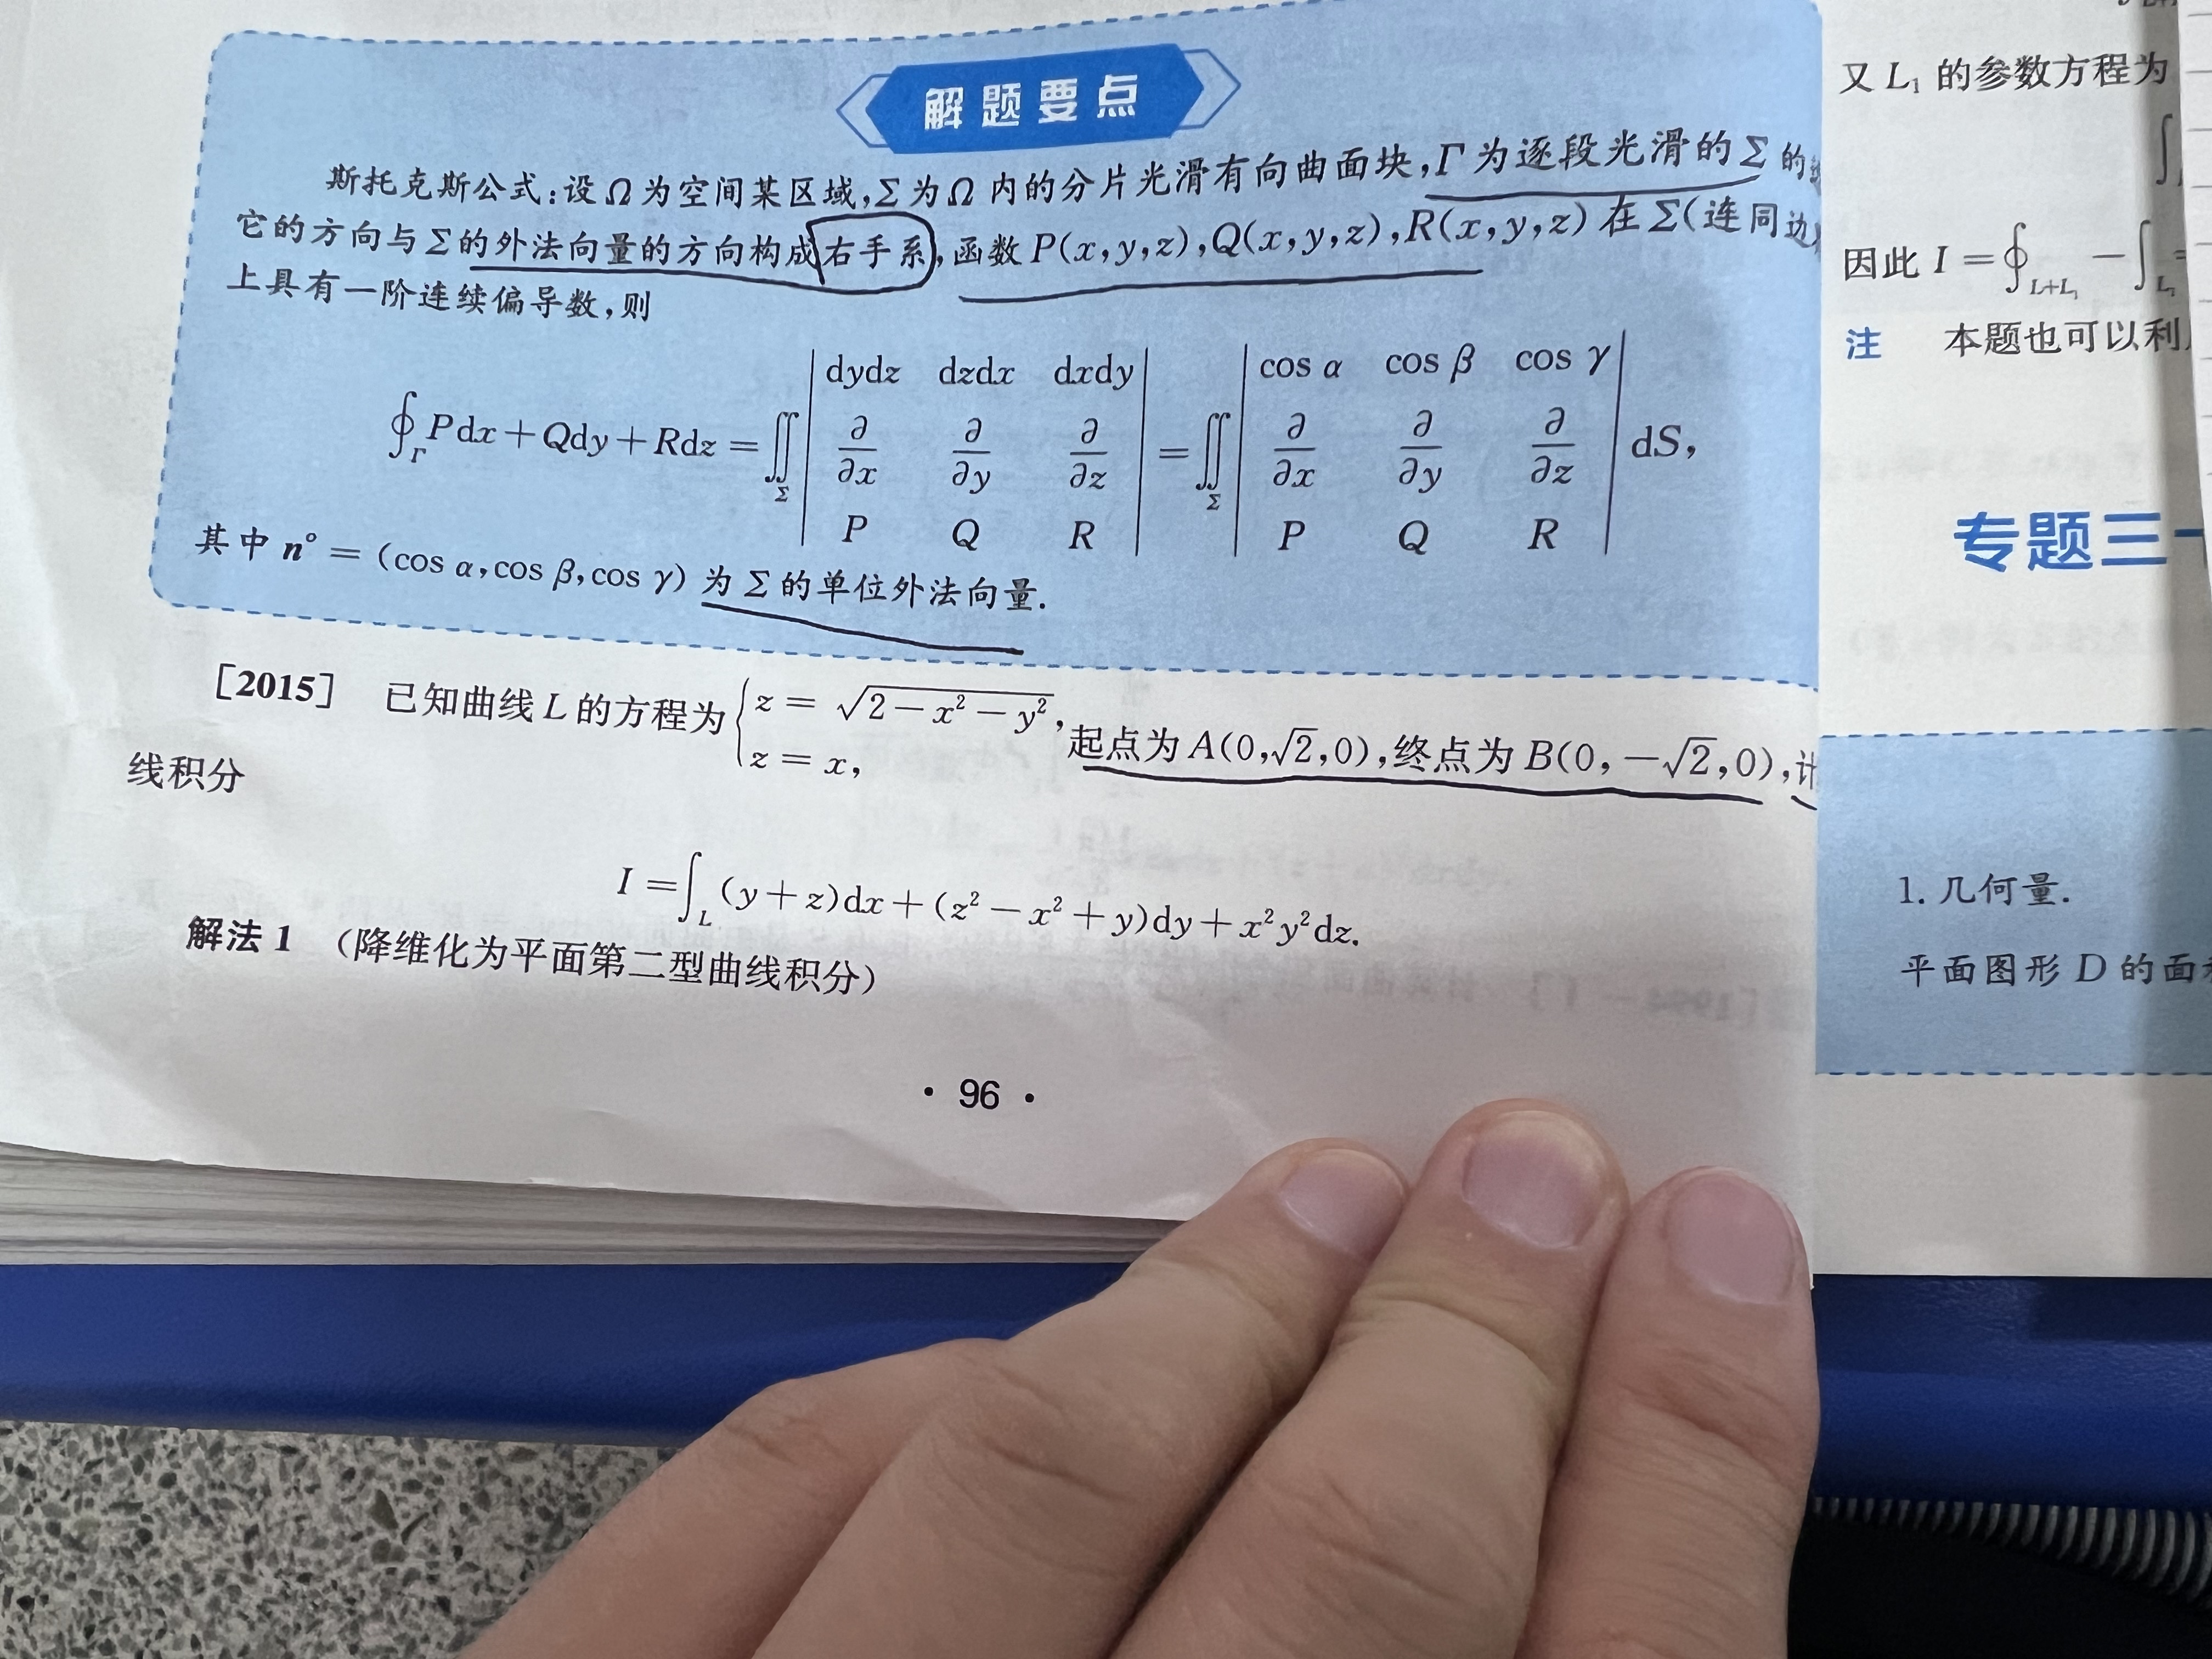 解题要点
斯托克斯公式:设Ω为空间某区域,Σ为Ω内的分片光滑有向曲面块,Γ为逐段光滑的Σ的
它的方向与Σ的外法向量的方向构成右手系,函数P(x,y,z),Q(x,y,z),R(x,y,z)在Σ(连同边
上具有一阶连续偏导数,则
∮_Γ Pdx+Qdy+Rdz=∬_Σ |dydz dzdx dxdy; ∂/∂x ∂/∂y ∂/∂z; P Q R|=∬_Σ |cos α cos β cos γ; ∂/∂x ∂/∂y ∂/∂z; P Q R| dS,
其中n°=(cos α,cos β,cos γ)为Σ的单位外法向量.
[2015] 已知曲线L的方程为{z=√(2-x²-y²), z=x, 起点为A(0,√2,0),终点为B(0,-√2,0),计
线积分
I=∫_L (y+z)dx+(z²-x²+y)dy+x²y²dz.
解法1 (降维化为平面第二型曲线积分)
· 96 ·
又L₁的参数方程为
∫
因此I=∮_{L+L₁}-∫_{L₁}=
注 本题也可以利
专题三
1. 几何量.
平面图形D的面